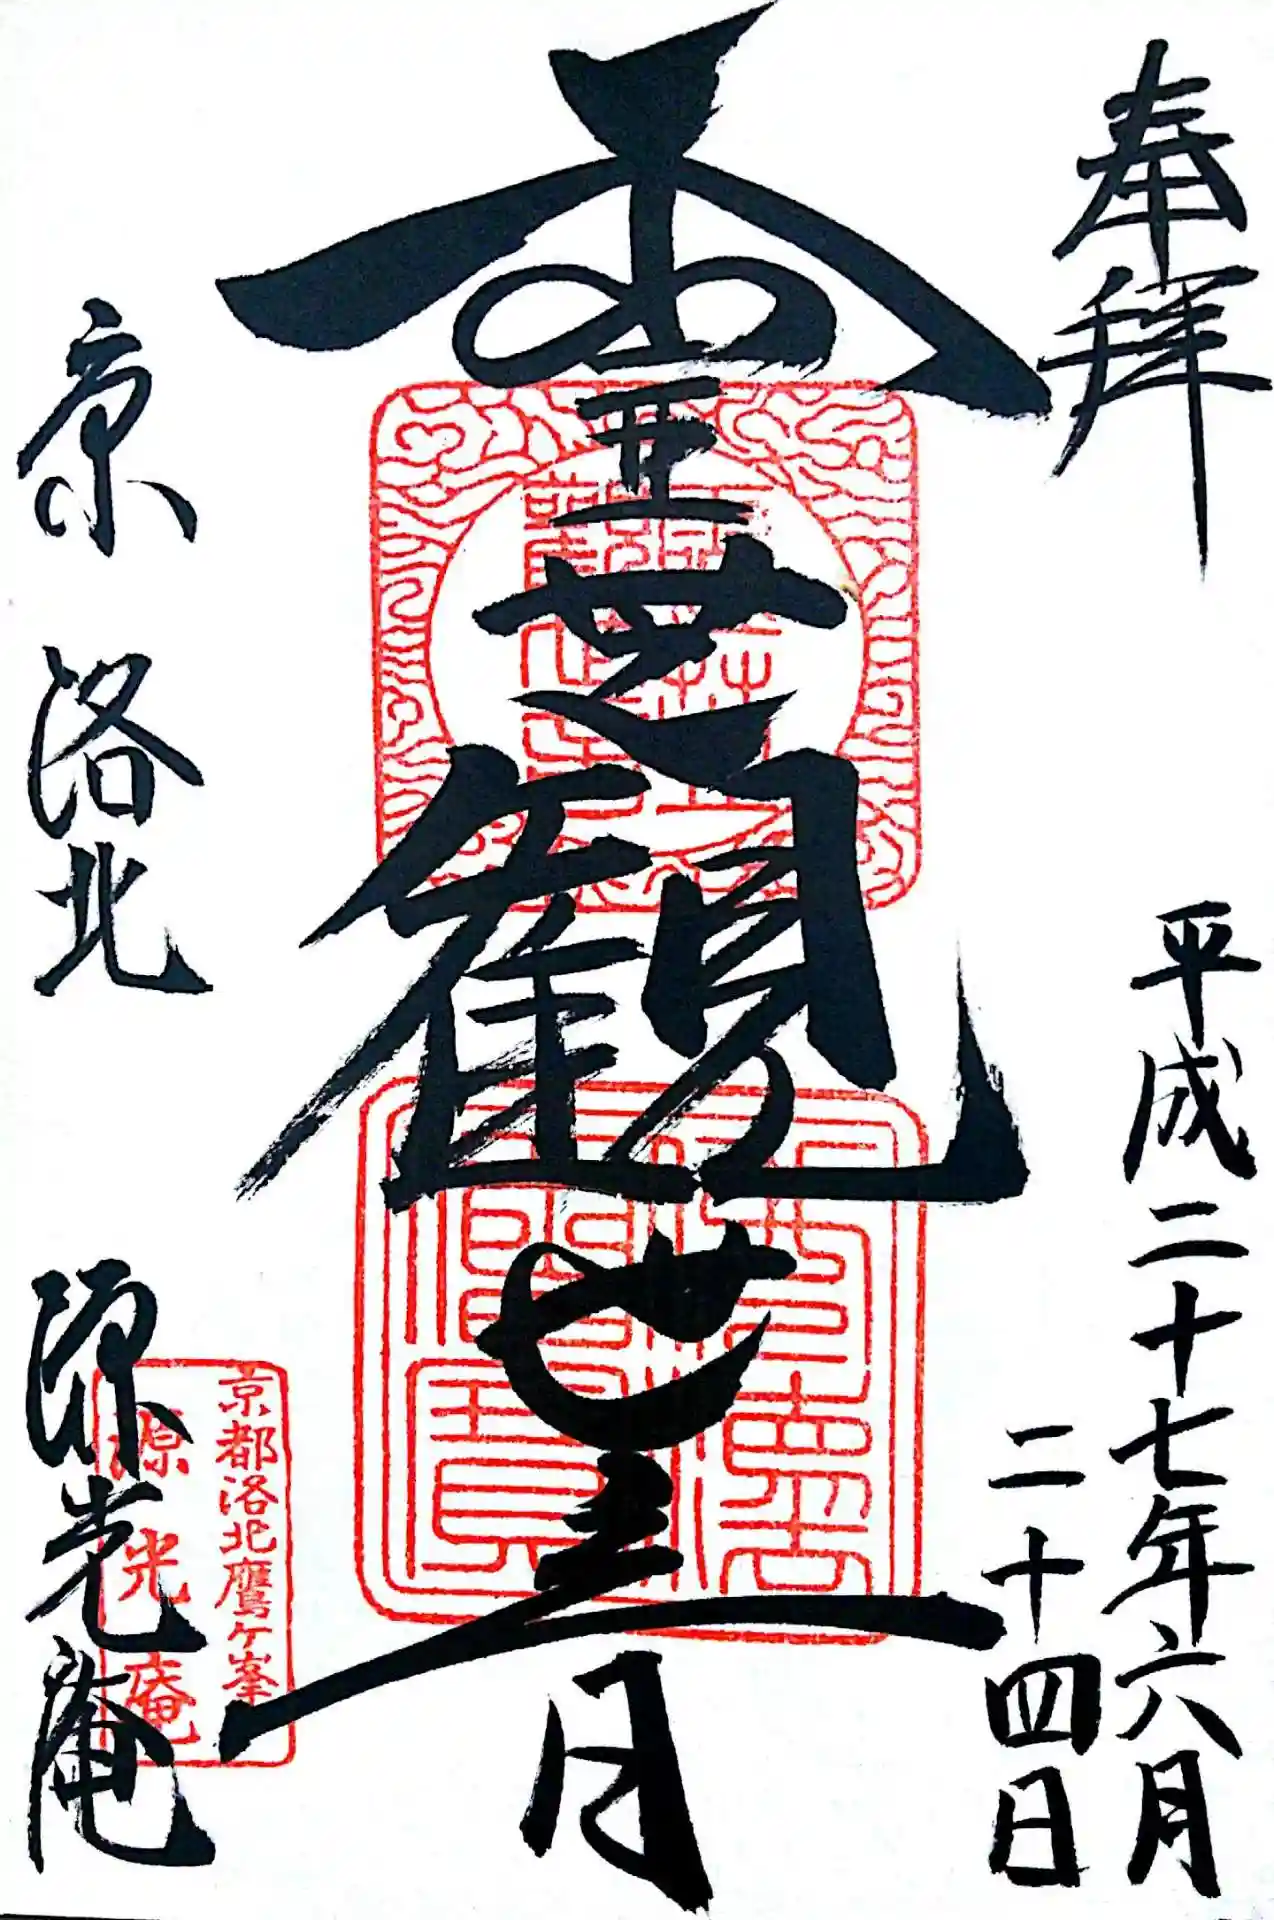 奉拝
平成二十七年六月
二十四日
霊芝観世音
京 洛北 源光庵
京都洛北鷹ヶ峯
源光庵